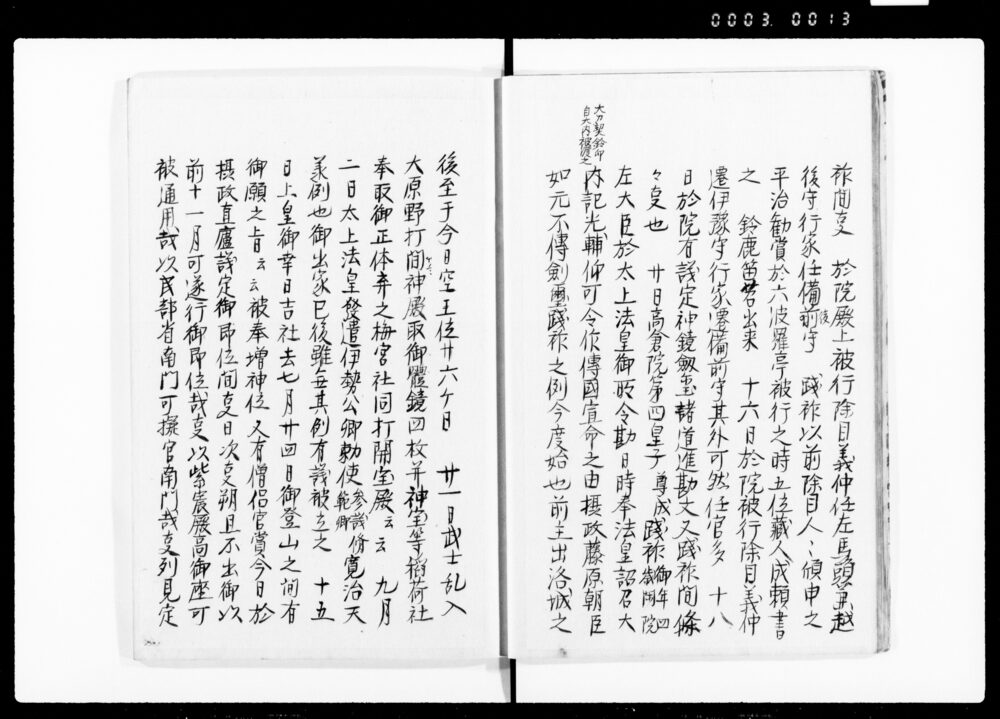 0003. 0013
祚間叓　於院殿上被行除目義仲任左馬頭兼越
後守行家任備前守　践祚以前除目人々頗申之
後
平治勧賞於六波羅亭被行之時五位蔵人成頼書
之　鈴鹿笛出来　十六日於院被行除目義仲
遷伊豫守行家遷備前守其外可然任官多　十八
日於院有議定神鏡劔璽諸道進勘文又践祚間條
々叓也　廿日高倉院第四皇子尊成践祚御年四閑院
左大臣於太上法皇御所令勘日時奉法皇詔召大
大刀契鈴印
自大内渡之
内記光輔仰可令作傳國宣命之由摂政藤原朝臣
如元不傳劍璽践祚之例今度始也前主出洛城之
後至于今日空王位廿六ケ日　廿一日武士乱入
大原野打開神殿取御體鏡四枚并神宝等稲荷社
奉取御正体弃之梅宮社同打開宝殿云云　九月
二日太上法皇發遣伊勢公卿勅使参議脩範卿寛治天
義例也御出家已後雖無其例有議被立之　十五
日上皇御幸日吉社去七月廿四日御登山之間有
御願之旨云云被奉増神位又有僧侶官賞今日於
摂政直廬議定御即位間叓日次叓朔旦不出御以
前十一月可遂行御即位哉叓以紫宸殿高御座可
被通用哉以民部省南門可擬官南門哉叓列見定